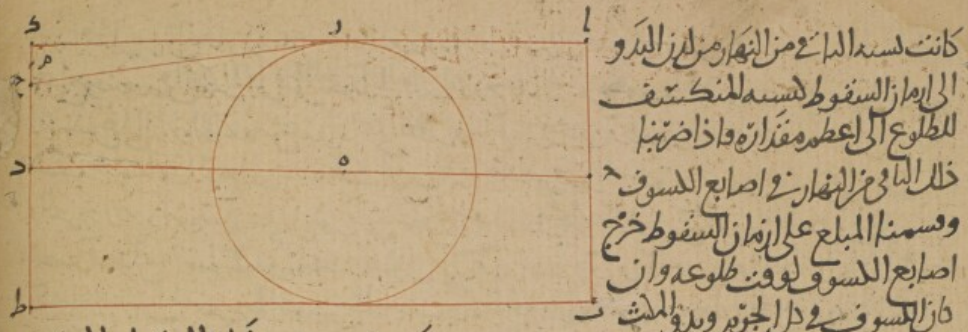 كانت نسبة الباقي من النهار من لدن البدو
الى ازمان السقوط كنسبة المنكسف
للطلوع الى اعظم مقداره واذا ضربنا
ذلك الباقي من النهار في اصابع الكسوف
وقسمنا المبلغ على ازمان السقوط خرج
اصابع الكسوف لوقت طلوعه وان
كان الكسوف في كل الجزئين وبدو المكث
ا
ر
ك
م
ح
د
ه
ط